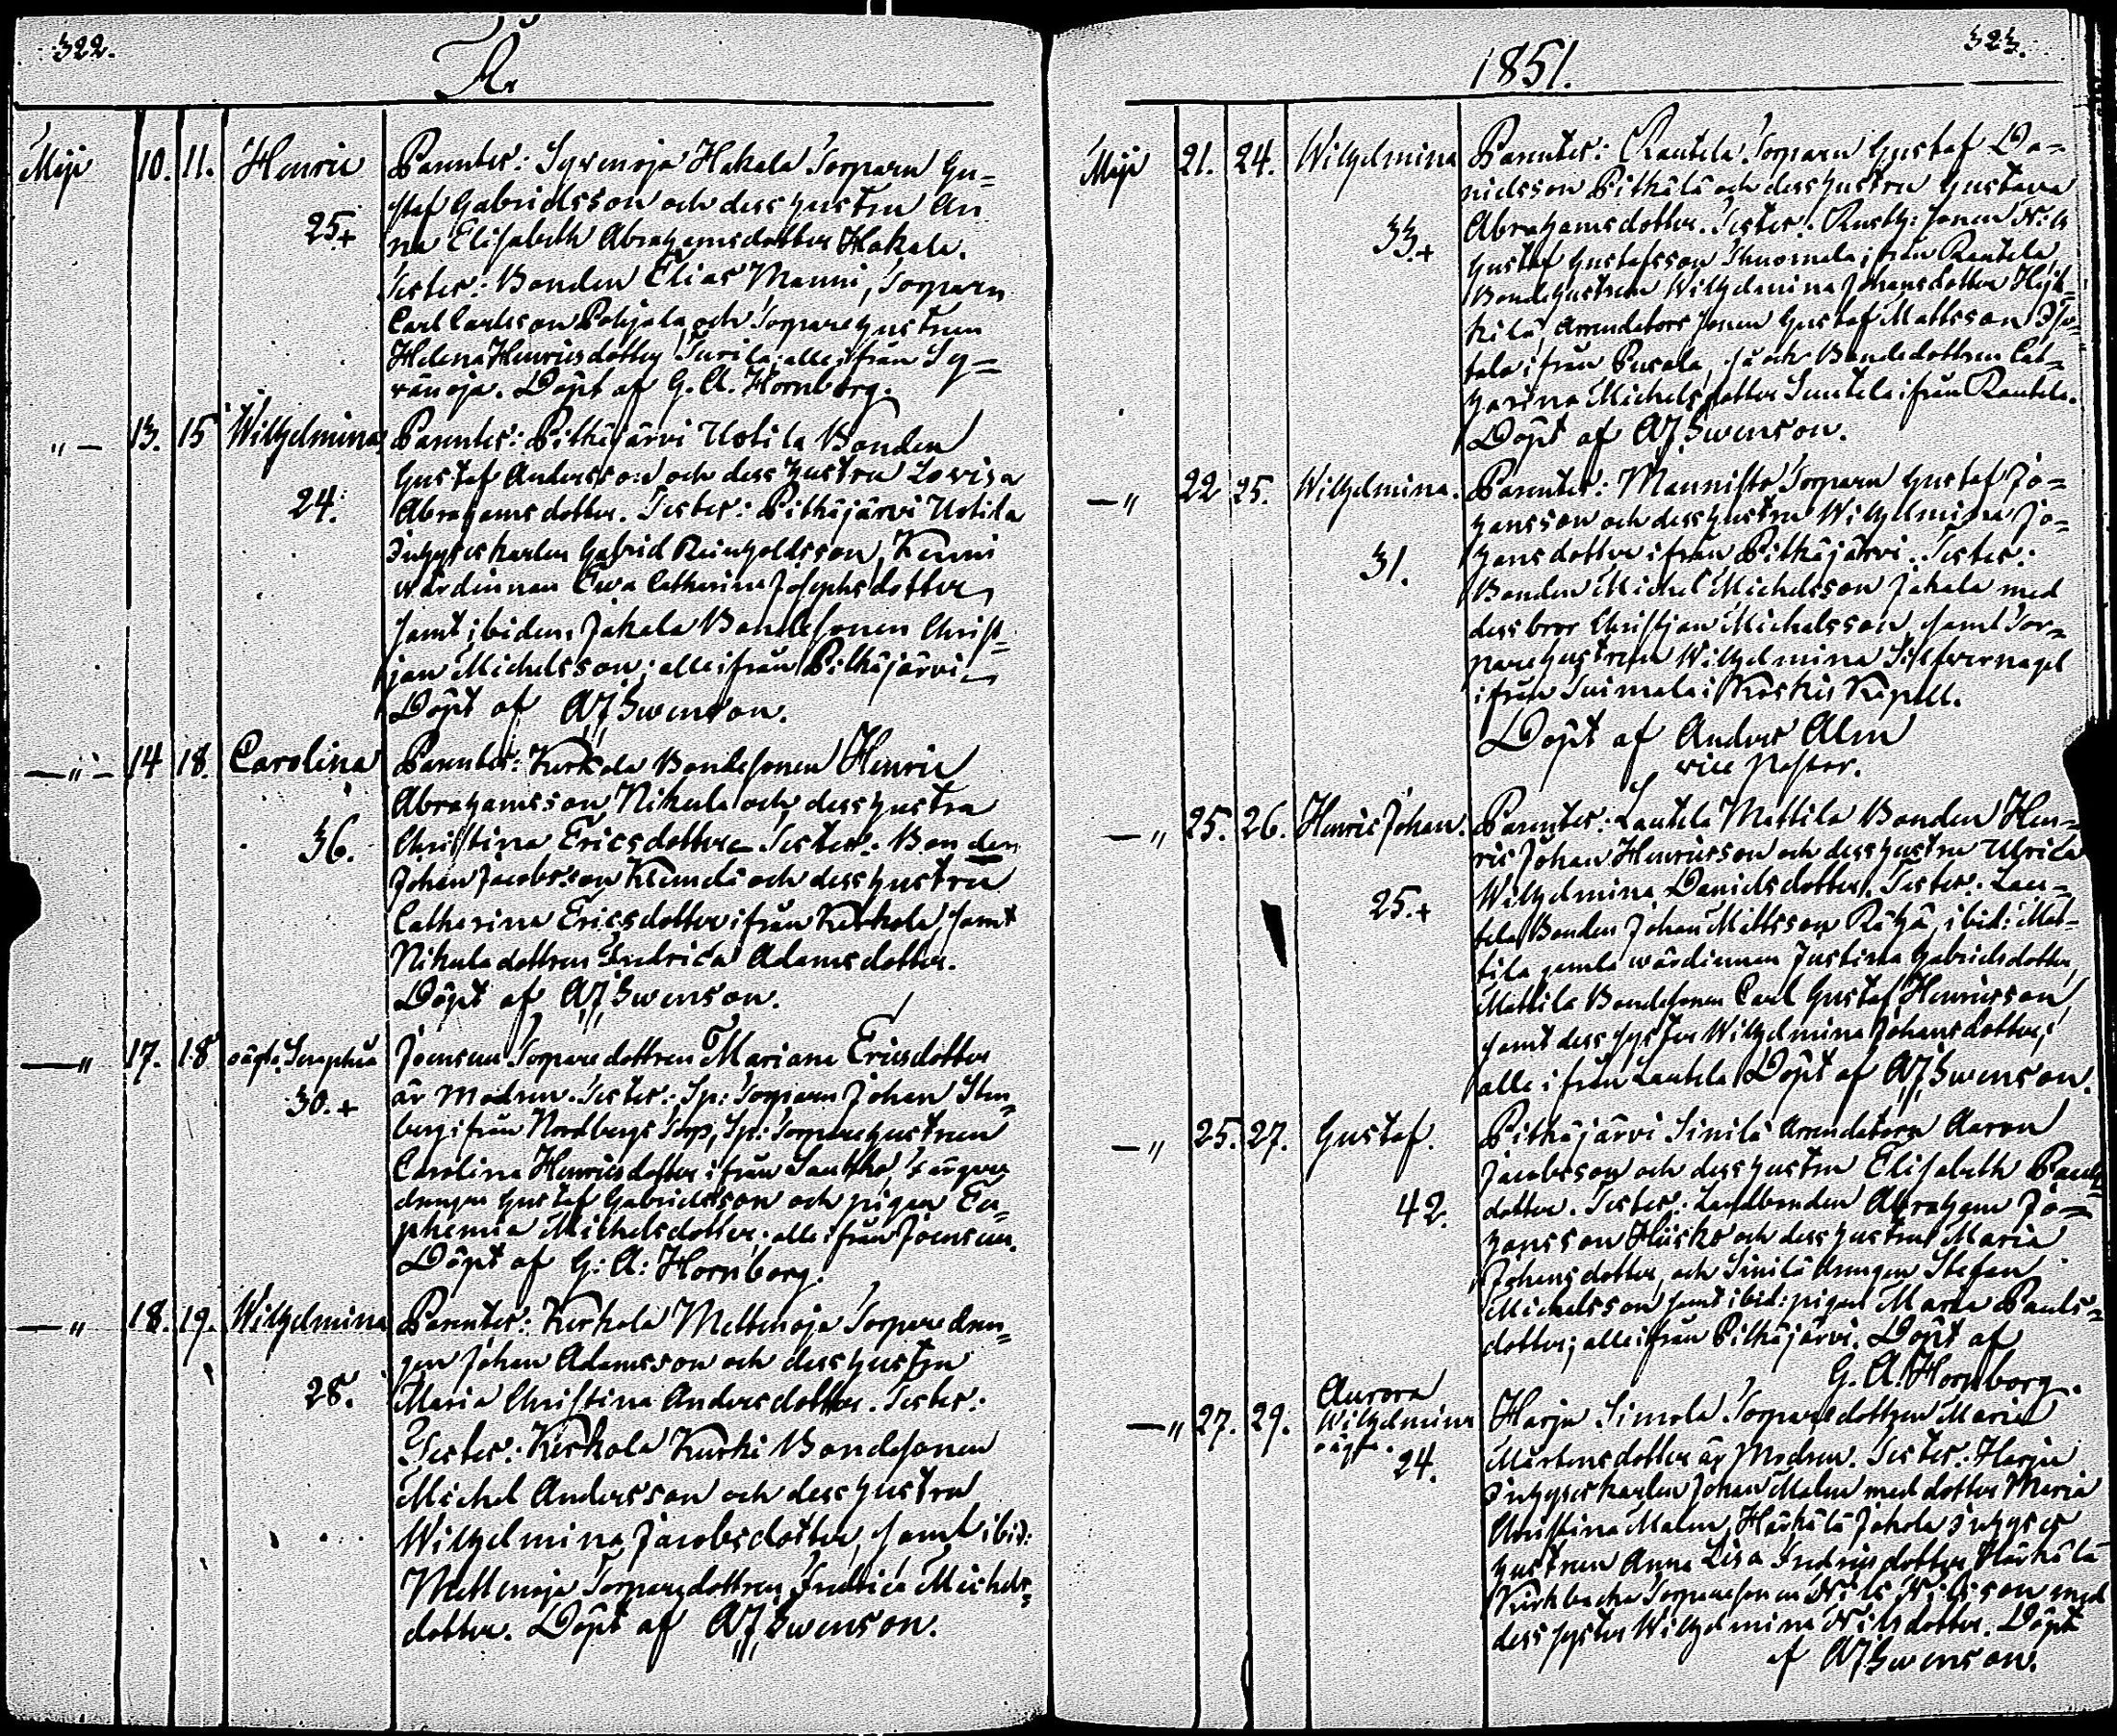 322.
År
Maji 10. 11. Henric
25.+
Parentes: Syvenoja Hakala Torparn Gu=
staf Gabrielsson och dess hustru An
na Elisabeth Abrahamsdotter Hakala.
Testes: Bonden Elias Manni, Torparn
Carl Carlsson Pohjala och Torparehustrun
Helena Henricsdotter Turila; alle ifrån Sy=
vänoja. Döpt af G. A. Hornborg.
"— 13. 15 Wilhelmina
24.
Parentes: Pitkäjärvi Uotila Bonden
Gustaf Andersson och dess hustru Lovisa
Abrahamsdotter. Testes: Pitkäjärvi Uotila
Inhyseskarlen Gabriel Reinholdsson,
wärdinnan Ewa Catharina Josephsdotter
samt ibidem Jakala Bondesonen Christ=
jan Michelsson; alle ifrån Pitkäjärvi
Döpt af AJ Swenson.
—"— 14 18. Carolina
36.
Parentes: Kerkola Bondesonen Henric
Abrahamsson Nikula och dess hustru
Christina Ericsdotter Testes: Bonden
Johan Jacobsson och dess hustru
Catharina Ericsdotter ifrån Kerkola, samt
Nikula dottren Fredrica Adamsdotter.
Döpt af AJ Swenson.
—" 17. 18 oägta Seraphia
30.+
Joensuu Torpare dottren Mariana Ericsdotter
är Modren. Testes: Sp: Torparn Johan Sten=
berg ifrån Nordbergs Torp, Sp: Torparehustrun
Carolina Henricsdotter ifrån
drengen Gustaf Gabrielsson och pigan Eu=
phemia Michelsdotter; alle ifrån Joensuu.
Döpt af G: A: Hornborg.
—" 18. 19. Wilhelmina
28.
Parentes: Kerkola Mettenoja Torpare dren=
gen Johan Adamsson och dess hustru
Maria Christina Andersdotter. Testes:
Testes: Kerkola Kurki Bondesonen
Michel Andersson och dess hustru
Wilhelmina Jacobsdotter, samt ibid:
Mettenoja Torparedottren Fredrica Michels=
dotter. Döpt af AJ Swenson.
1851.
323.
Maji 21. 24. Wilhelmina
33.+
Parentes: Rautela Torparn Gustaf Da=
nielsson Pitkälä och dess hustru Gustava
Abrahamsdotter. Testes: Rusth: sonen
Gustaf Gustafsson ifrån Rautela
Bondehustrun Wilhelmina Johansdotter Heik=
kilä, Arrendators sonen Gustaf Mattsson Iso=
tala ifrån Pusala, så och Bondedottren Cat=
harina Michelsdotter ifrån Rautela.
Döpt af AJ Swenson.
—" 22 25. Wilhelmina.
31.
Parentes: Mannisto Torparn Gustaf Jo=
hansson och dess hustru Wilhelmina Jo=
hansdotter ifrån Pitkäjärvi. Testes:
Bonden Michel Michelsson Jakala med
dess bror Christjan Michelsson samt Tor=
parehustrun Wilhelmina Silfvernagel
ifrån Suimala i Koskis Kapell.
Döpt af Anders Alm
vice Pastor.
—" 25. 26. Henric Johan.
25.+
Parentes: Lautela Mattila Bonden Hen=
ric Johan Henricsson och dess hustru Ulrica
Wilhelmina Danielsdotter. Testes: Lau=
tela Bonden Johan Mattsson Rähä, ibid: Mat=
tila gamla wärdinnan Justina Gabrielsdotter,
Mattila Bondesonen Carl Gustaf Henricsson,
samt dess syster Wilhelmina Johansdotter;
alle ifrån Lautela Döpt af AJ Swenson.
—" 25. 27. Gustaf.
42.
Pitkäjärvi Sinilä Arrendatorn Aaron
Jacobsson och dess hustru Elisabeth Pauls=
dotter. Testes: Landbonden Abraham Jo=
hansson Hiisko och dess hustru Maria
Johansdotter, och Sinilä drengen Stefan
Michelsson samt ibid: pigan Maria Pauls=
dotter; alle ifrån Pitkäjärvi. Döpt af
G. A. Hornborg.
—" 27. 29. Aurora
Wilhelmina
oägta.
24.
Harju Simola Torparedottren Maria
Mårtensdotter är Modren. Testes: Harju
Inhyseskarlen Johan Malm med dotter Maria
Christina Malm, Härkälä Jakola Inhyses
hustrun Anna Lisa Fredricsdotter Härkälä
Torparesonen Nils Nilsson med
dess syster Wilhelmina Nilsdotter. Döpt
af AJ Swenson.